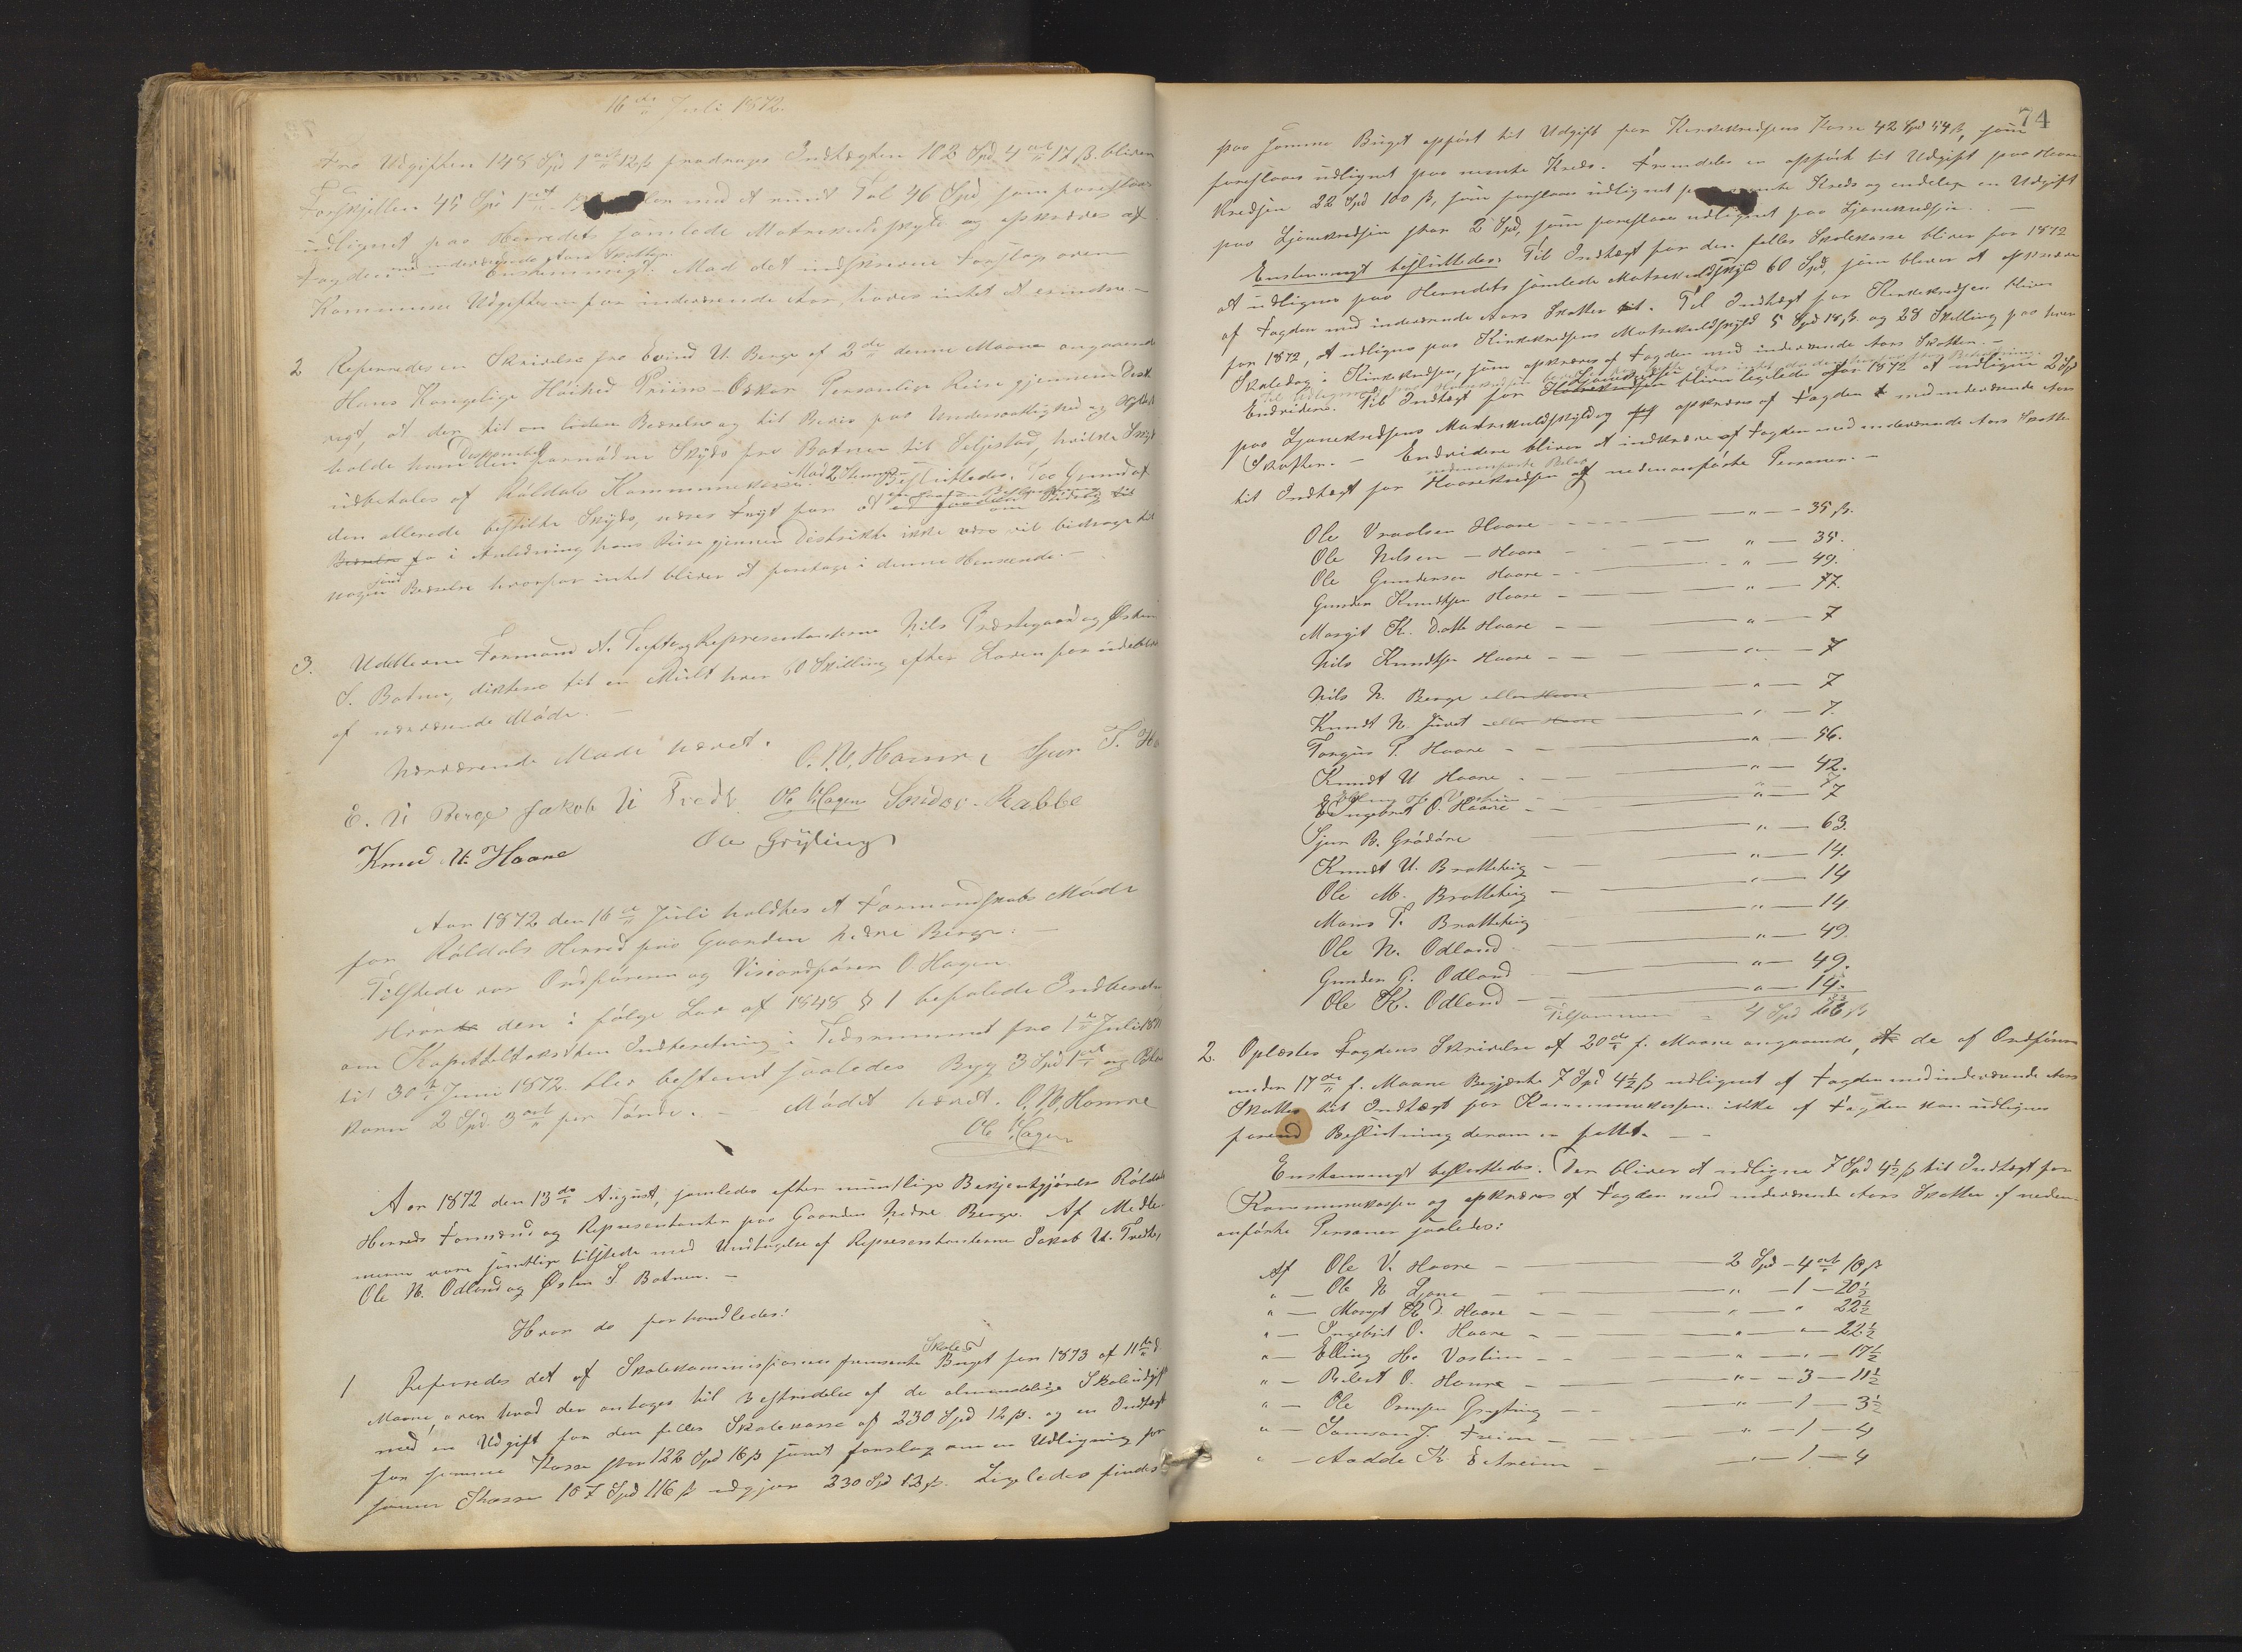 16de Juli 1872.
Fra Udgiften 148 Spd 1 ort 12 ß fradrages Indtægten 102 Spd 4 ort 17 ß. bliver
Forskjellen 45 Spd 1 ort med et rundt Tal 46 Spd som foreslaaes
udlignet paa Herredets samlede Matrikulskyld og opkræves af
Fogden med indeværende Aars Skatter.
Enstemmigt: Mod det indskrevne Forslag over
Kommune Udgifterne for indeværende Aar, haves intet at erindre.
2 Refereredes en Skrivelse fra Eivind U. Berge af 2de denne Maaned angaaende
Hans Kongelige Høihed Prins Oskar Personlige Reise gjennem Distriktet
at der til en liden Æreselse og til Bevis paa Undersaatlighed og
holde ham Disponibel den fornødne Skyds fra Botnen til Seljestad, hvilke Skyds
udbetales af Röldals Kommunekasse. Mod 2 Stemmer Besluttedes: Paa Grund af
den allerede bestilte Skyds, næres Frygt for at
fra i Anledning hans Reise gjennem Distriktet ikke være vil bidrage til
nogen hvorfor intet bliver at foretage i denne Henseende.
3. Udeblevne Formand A. Tufte og Repræsentanterne Nils Prestegaard og Østen
S. Botnen, dikteres til en Mulkt hver 60 Skilling efter Loven for udeblivelse
af nærværende Møde.
Nærværende Møde hævet. O. N. Hamre, Sjur T. Ha
E. U Berge Jakob U Træde Ole Hagen Sondov Rabbe
Knud U. Haare Ole Gryting
Aar 1872 den 16de Juli holdtes et Formandskabs Møde
for Röldals Herred paa Gaarden Nedre Berge:
Tilstede var Ordføreren og Viceordfører O. Hagen
Hvor den i følge Lov af 1848 § 1 befalede Indberetning
om Kapitelstaksten Indberetning i Tidsrummet fra 1ste Juli 1871
til 30te Juni 1872 blev bestemt saaledes Byg 3 Spd 1 ort og
korn 2 Spd. 3 ort per Tønde. Mødet hævet. O. N. Hamre
Ole Hagen
Aar 1872 den 13de August, samledes efter mundtlige Bekjentgjørelse Röldals
Herreds Formænd og Repræsentanter paa Gaarden Nedre Berge. Af Medlem-
merne vare samtlige tilstede med Undtagelse af Repræsentanterne Jakob U. Træde,
Ole N. Odland og Østen S. Botnen.
Hvor da forhandledes:
1 Refereredes det af Skolekommissionen fremsatte Skole Buget for 1873 af 11te d.
Maaned over hvad der antages til Bestridelse af de almindelige Skoleudgift
med en Udgift for den fælles Skolekasse af 230 Spd 12 ß. og en Indtægt
for samme Kasse stor 122 Spd 16 ß samt forslag om en Udligning for
samme Kasse 107 Spd 116 ß udgjør 230 Spd 12 ß. Ligeledes findes
74
paa samme Buget opført til Udgift for Kirkekredsens Kasse 42 Spd 54 ß, som
foreslaaes udlignet paa nemte Kreds. Fremdeles er opført til Udgift paa Haare
Kredsen 22 Spd 100 ß, som foreslaaes udlignet paa nemte Kreds og endelig en Udgift
paa Ljonekredsen stor 2 Spd, som foreslaaes udlignet paa Ljonekredsen.
Enstemmigt besluttedes: Til Indtægt for den fælles Skolekasse bliver for 1872
at udligne paa Herredets samlede Matrikulskyld 60 Spd, som bliver at opkræve
af Fogden med indeværende Aars Skatter. Til Indtægt for Kirkekredsen bliver
for 1872, at udligne paa Kirkekredsens Matrikulskyld 5 Spd 18 ß. og 28 Skilling paa hver
Skoledag i Kirkekredsen, som opkræves af Fogden med indeværende Aars Skatter.
Endvidere. Til Indtægt for Ljonekredsen bliver ligeledes for 1872 at udligne 2 Spd
paa Ljonekredsens Matrikulskyld og opkræves af Fogden med indeværende Aars
Skatter. Endvidere bliver at indkræve af Fogden med indeværende Aars Skatter
til Indtægt for Haarekredsen af nedenanførte Personer.
Ole Vraalsen Haare " 35 ß.
Ole Nilsen Haare " 35.
Ole Gundersen Haare " 49.
Gunder Knudtsen Haare " 77.
Margit K. Datter Haare " 7
Nils Knudtsen Haare " 7
Nils N. Berge eller Haare " 7
Knudt N. Juvet eller Haare " 7.
Torgus T. Haare " 56.
Knudt U Haare " 42.
Elling H. Vostein " 7
Ingebret O. Haare " 7
Sjur B. Grødøre " 63.
Knudt U. Bratteteig " 14.
Ole M. Bratteteig " 14
Mons T. Bratteteig " 14
Ole N. Odland " 49.
Gunder G. Odland " 49.
Ole K. Odland " 14.
Tilsammen = 4 Spd
2. Oplæstes Fogdens Skrivelse af 20de f. Maane angaaende, at de af Ordføreren
under 17de f. Maane Begjærte 7 Spd 4½ ß udlignet af Fogden med indeværende Aars
Skatter til Indtægt for Kommunekassen ikke af Fogden kan udlignes
forend Beslutning derom er fattet.
Enstemmigt besluttedes. Der bliver at udligne 7 Spd 4½ ß til Indtægt for
Kommunekassen og opkræves af Fogden med indeværende Aars Skatter af neden-
anførte Personer saaledes:
Af Ole V. Haare 2 Spd - 4 ort 10 ß
" Ole N Ljone " - 1 - 20½
" Margit K. D. Haare " - " 22½
" Ingebrit O. Haare " - " - 22½
" Elling H. Vostein " - " - 17½
" Robert O. Haare " - 3 - 11½
" Ole Ormsen Gryting " - 1 - 3½
" Samson J. " - 1 - 4
" Aadde K " - 1 - 4